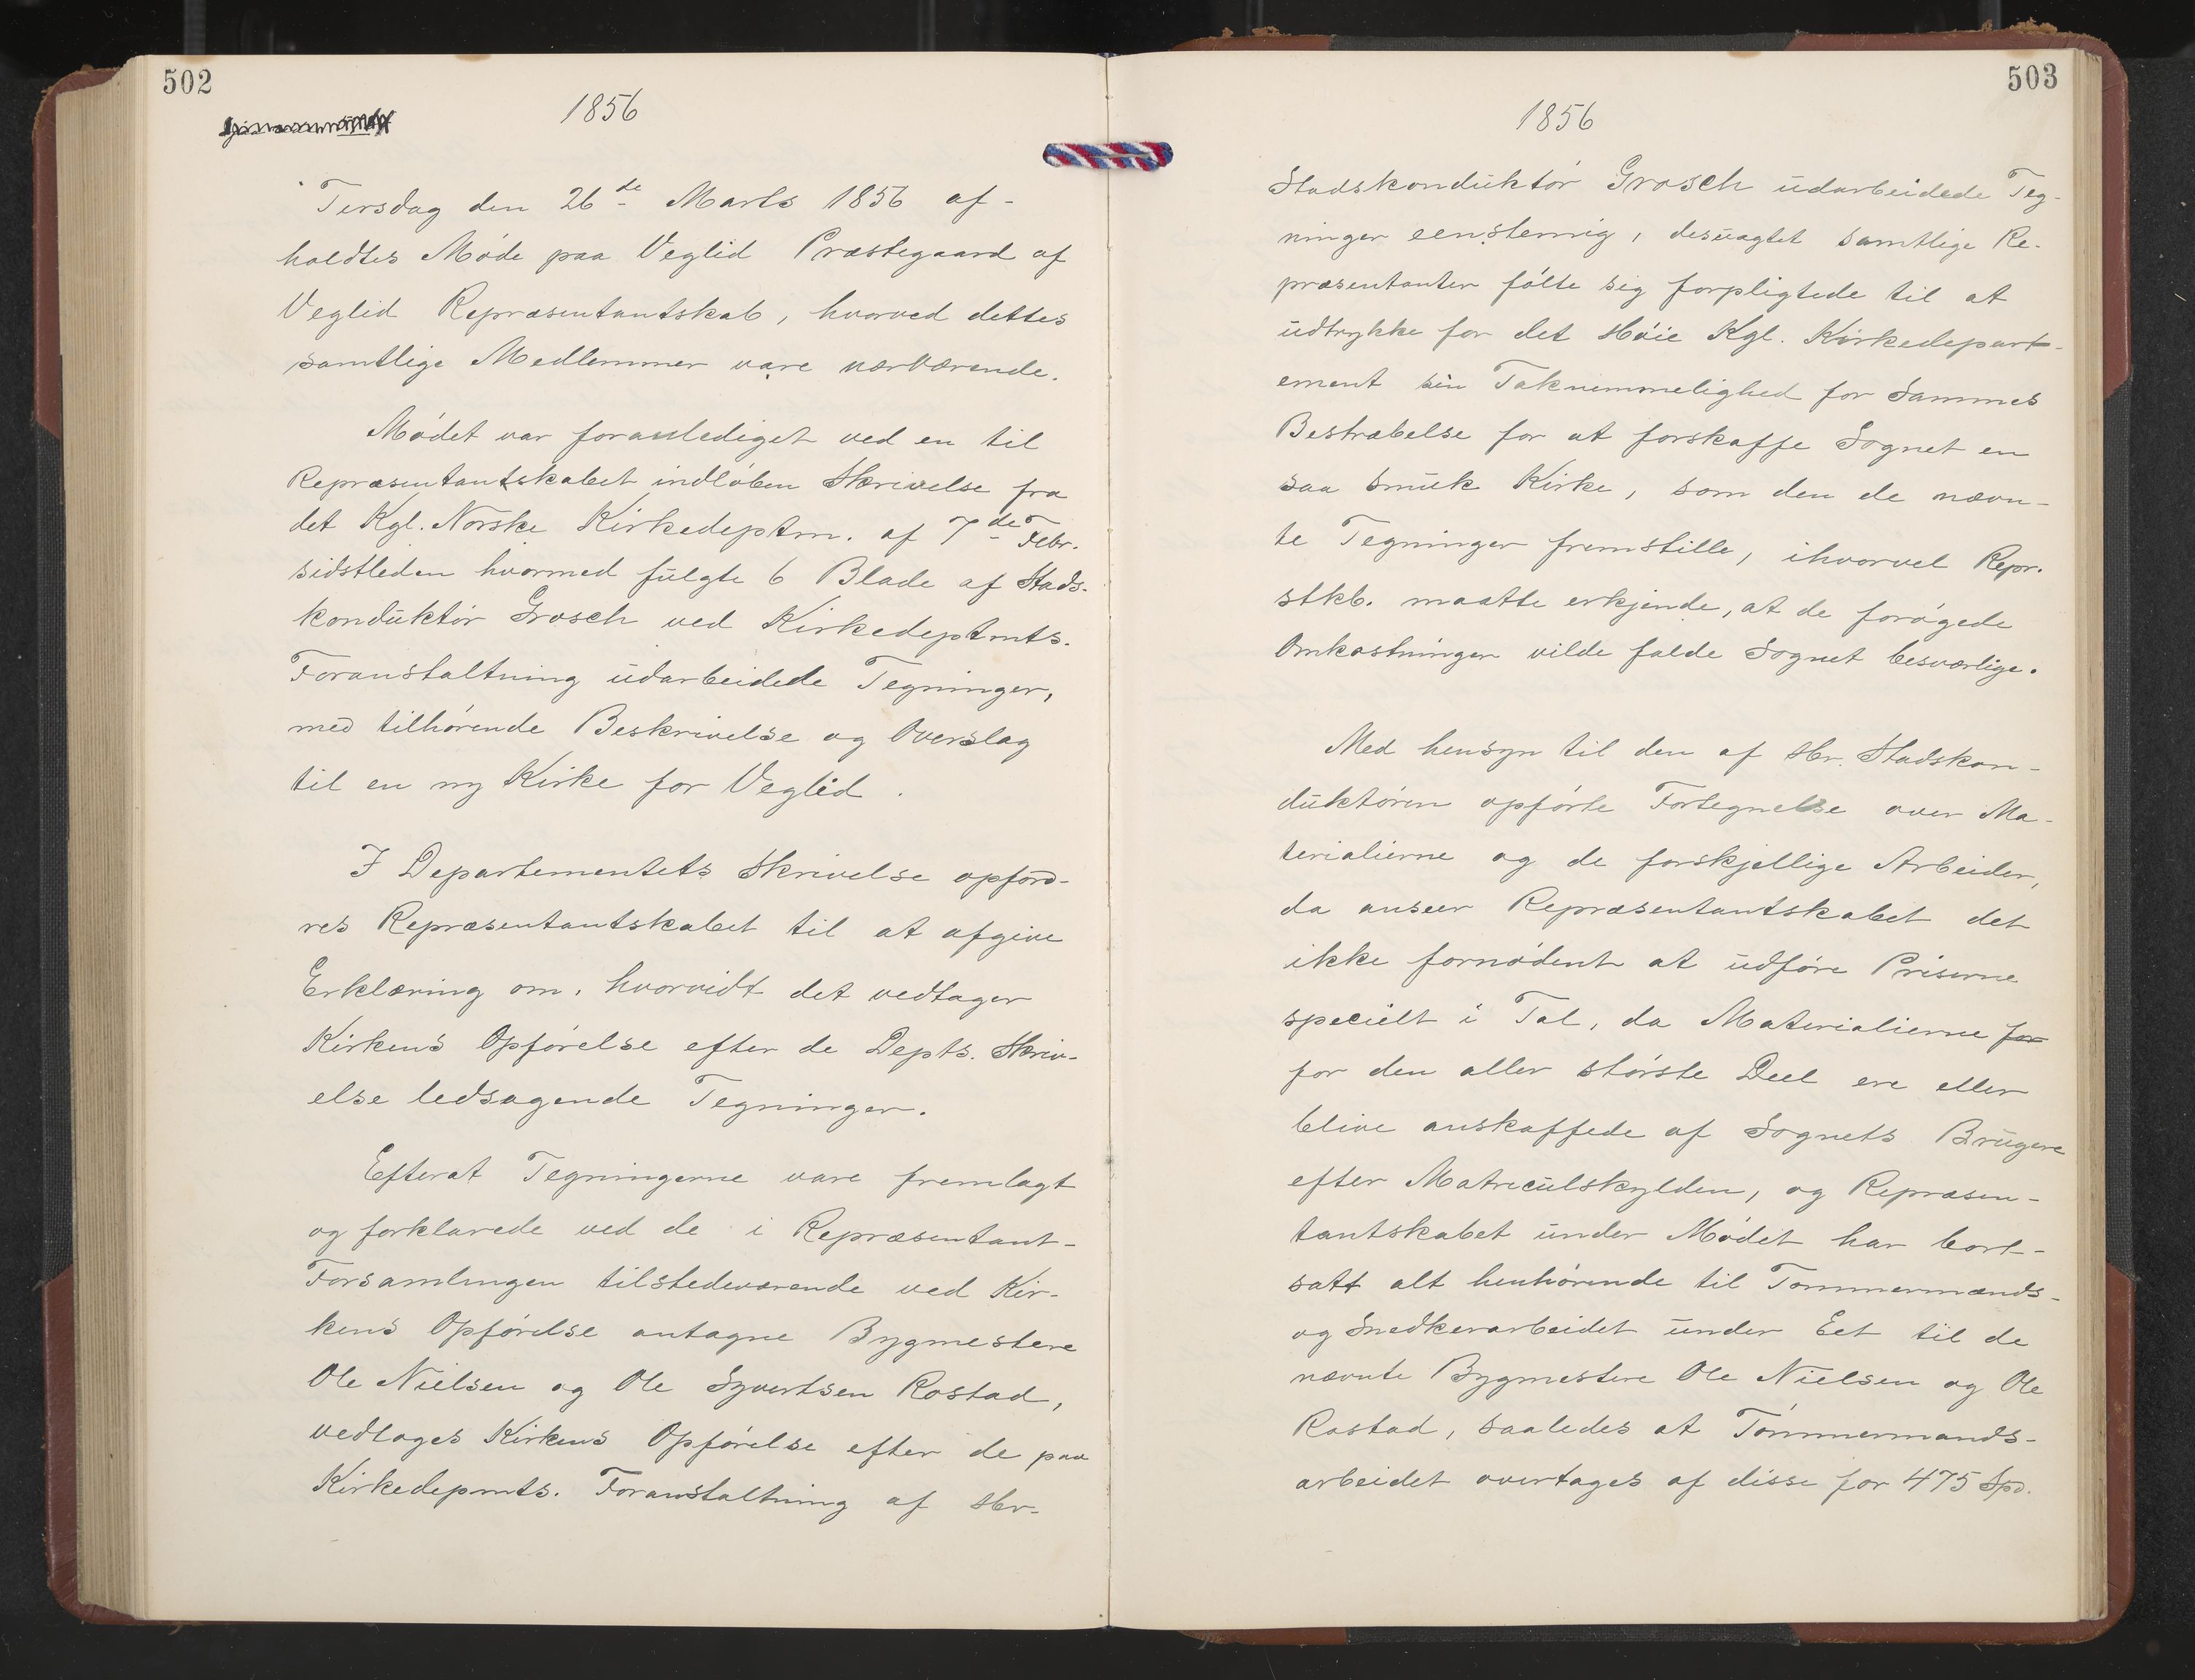 502
1856
Tirsdag den 26de Marts 1856 af-
holdtes Møde paa Veglid Præstegaard af
Veglid Repræsentantskab, hvorved dettes
samtlige Medlemmer vare nærværende.
Mødet var foranlediget ved en til
Repræsentantskabet indløben Skrivelse fra
det Kgl. Norske Kirkedeptm. af 7de Febr.
sidstleden hvormed fulgte 6 Blade af Stads-
konduktør Grosch ved Kirkedeptmts.
Foranstaltning udarbeidede Tegninger,
med tilhørende Beskrivelse og Overslag
til en ny Kirke for Veglid.
I Departementets Skrivelse opford-
res Repræsentantskabet til at afgive
Erklæring om, hvorvidt det vedtager
Kirkens Opførelse efter de Depts. Skriv-
else ledsagende Tegninger.
Efterat Tegningerne vare fremlagt
og forklarede ved de i Repræsentant-
Forsamlingen tilstedeværende ved Kir-
kens Opførelse antagne Bygmestere
Ole Nielsen og Ole Syvertsen Rostad,
vedtoges Kirkens Opførelse efter de paa
Kirkedepmts. Foranstaltning af Hr.
503
1856
Stadskonduktør Grosch udarbeidede Teg-
ninger eenstemig, desuagtet samtlige Re-
præsentanter følte sig forpligtede til at
udtrykke for det Høie Kgl. Kirkedepart-
ement sin Taknemmelighed for Sammes
Bestræbelse for at forskaffe Sognet en
saa smuk Kirke, som den de nævn-
te Tegninger fremstille, ihvorvel Repr.
stkb. maatte erkjende, at de forøgede
Omkostninger vilde falde Sognet besværlige.
Med hensyn til den af Hr. Stadskon-
duktøren opførte Fortegnelse over Ma-
terialierne og de forskjellige Arbeider,
da anseer Repræsentantskabet det
ikke fornødent at udføre Priserne
specielt i Tal, da Materialierne for
for den aller største Deel ere eller
blive anskaffede af Sognets Brugere
efter Matriculskylden, og Repræsen-
tantskabet under Mødet har bort-
satt alt henhørende til Tømmermands-
og Snedkerarbeidet under Eet til de
nævnte Bygmestere Ole Nielsen og Ole
Rostad, saaledes at Tømmermands-
arbeidet overtages af disse for 475 Spd.